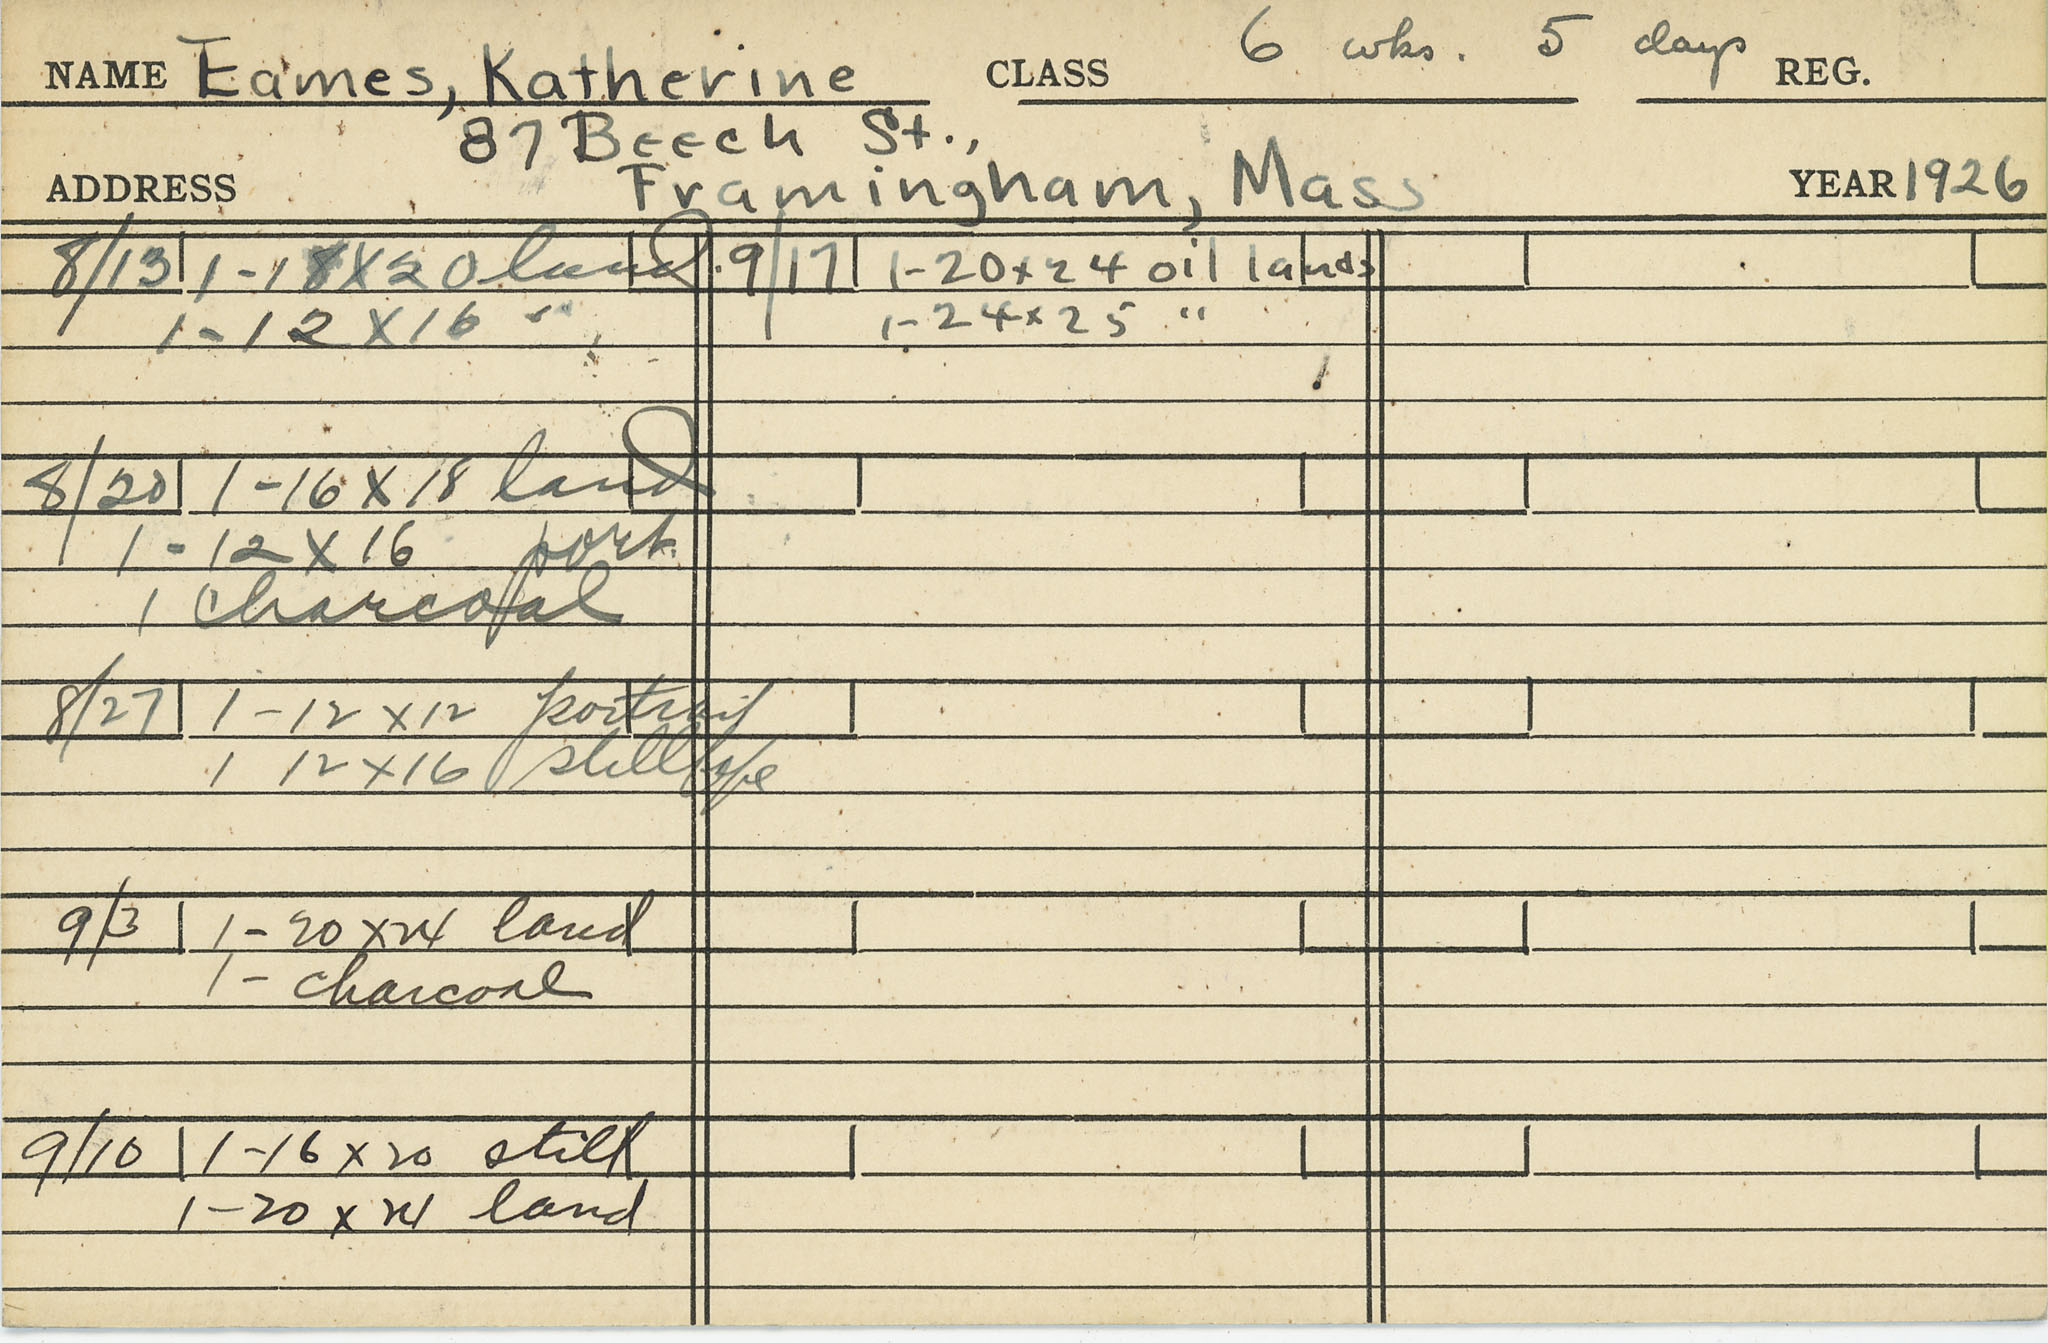 NAME Eames, Katherine CLASS 6 wks. 5 days REG.
87 Beech St.,
ADDRESS Framingham, Mass YEAR 1926
8/13 1-18x20 land.
1-12x16 "
8/20 1-16x18 land
1-12x16 port.
1 charcoal
8/27 1-12x12 portrait
1 12x16 still life
9/3 1-20x24 land
1- charcoal
9/10 1-16x20 still
1-20x24 land
9/17 1-20x24 oil lands
1-24x25 "